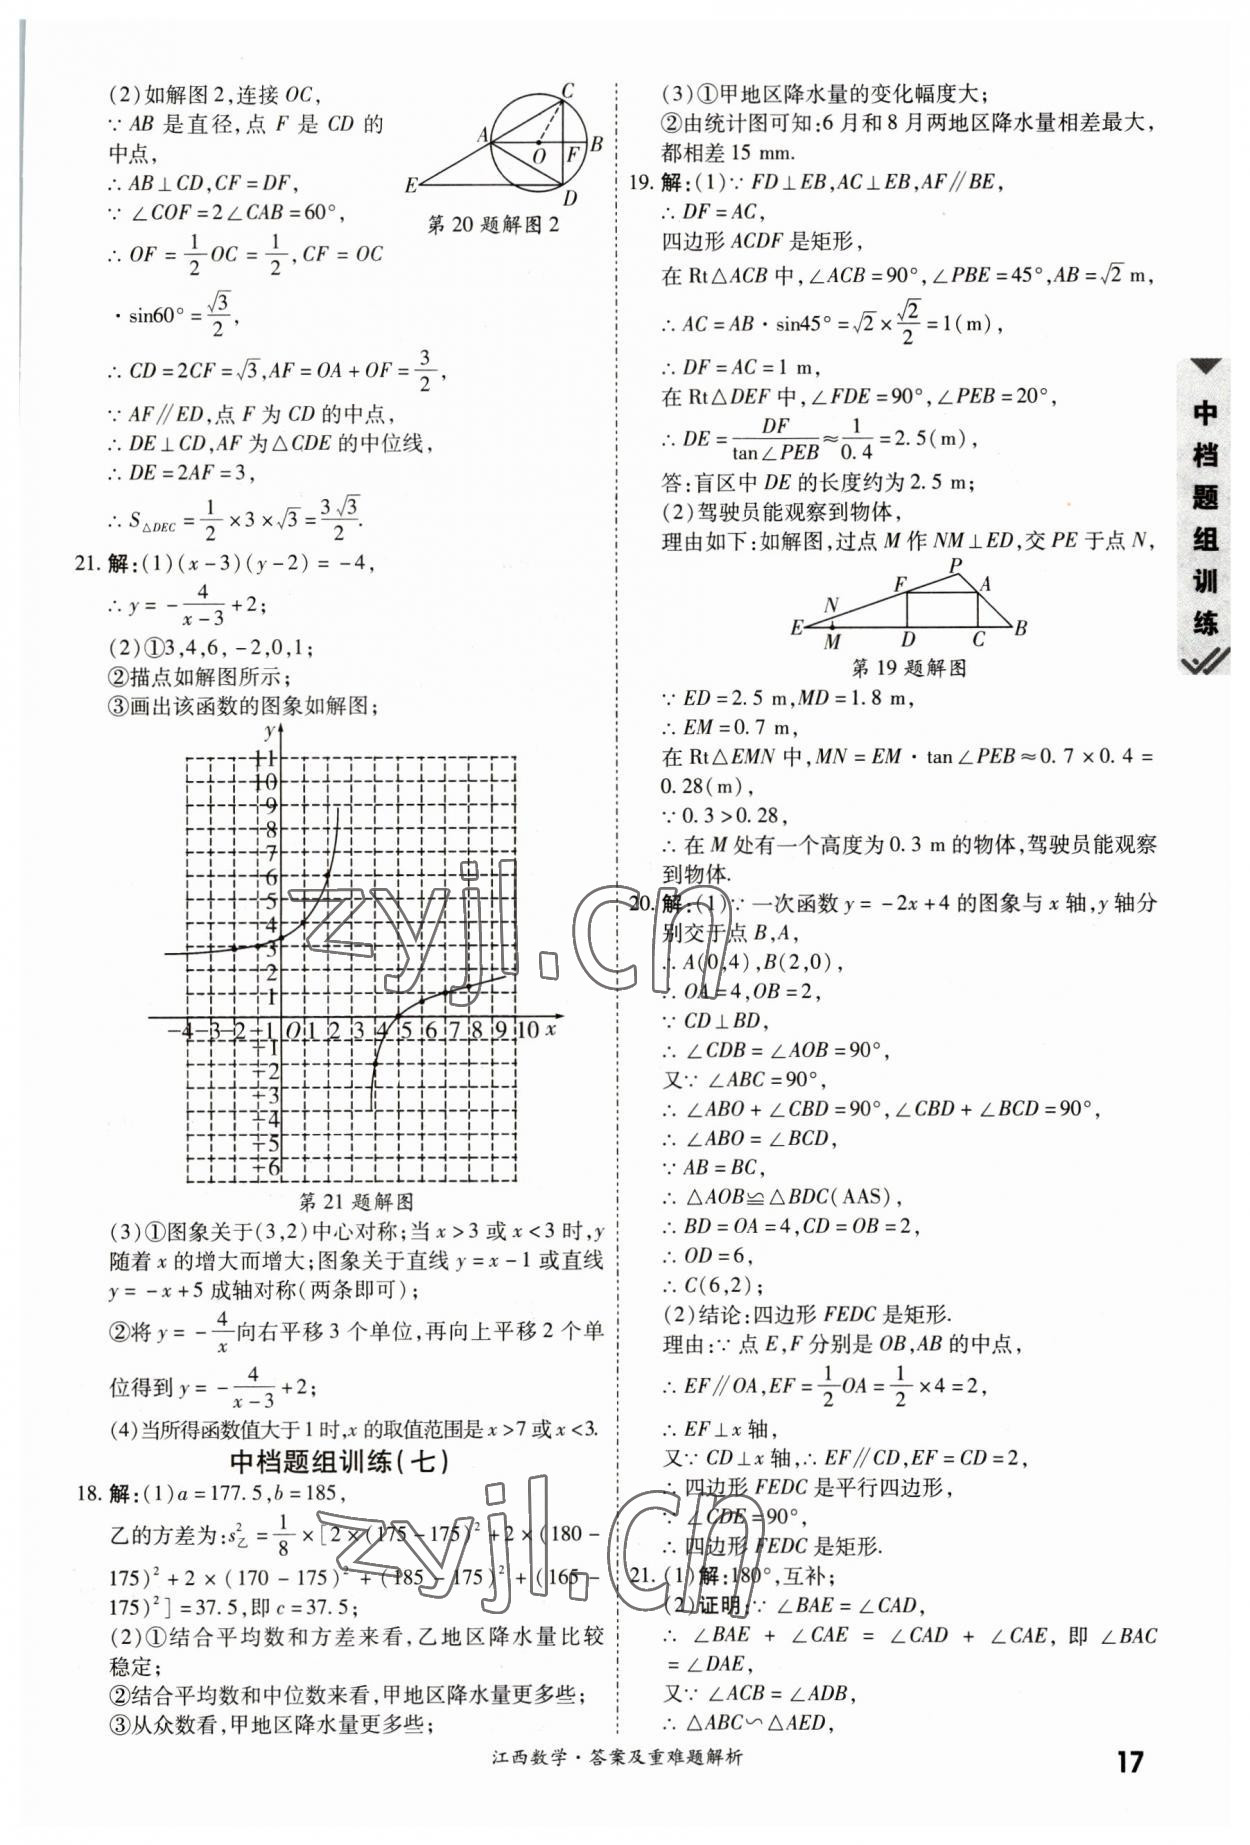 (2)如解图2,连接 OC,
∵ AB 是直径,点 F 是 CD 的
中点,
∴ AB⊥CD,CF=DF,
∵ ∠COF=2∠CAB=60°,
∴ OF=1/2 OC=1/2,CF=OC
·sin60°=√3/2,
∴ CD=2CF=√3,AF=OA+OF=3/2,
∵ AF∥ED,点 F 为 CD 的中点,
∴ DE⊥CD,AF 为△CDE 的中位线,
∴ DE=2AF=3,
∴ S△DEC=1/2×3×√3=3√3/2.
C
A
B
O
F
E
D
第20题解图2
21. 解:(1)(x-3)(y-2)=-4,
∴ y=-4/(x-3)+2;
(2)①3,4,6,-2,0,1;
②描点如解图所示;
③画出该函数的图象如解图;
y
11
10
9
8
7
6
5
4
3
2
1
-4 -3 -2 -1 O 1 2 3 4 5 6 7 8 9 10 x
-1
-2
-3
-4
-5
-6
第21题解图
(3)①图象关于(3,2)中心对称;当x>3或x<3时,y
随着x的增大而增大;图象关于直线y=x-1或直线
y=-x+5成轴对称(两条即可);
②将y=-4/x向右平移3个单位,再向上平移2个单
位得到y=-4/(x-3)+2;
(4)当所得函数值大于1时,x的取值范围是x>7或x<3.
中档题组训练(七)
18. 解:(1)a=177.5,b=185,
乙的方差为:s²乙=1/8×[2×(175-175)²+2×(180-
175)²+2×(170-175)²+(185-175)²+(165-
175)²]=37.5,即c=37.5;
(2)①结合平均数和方差来看,乙地区降水量比较
稳定;
②结合平均数和中位数来看,甲地区降水量更多些;
③从众数看,甲地区降水量更多些;
(3)①甲地区降水量的变化幅度大;
②由统计图可知:6月和8月两地区降水量相差最大,
都相差15 mm.
19. 解:(1)∵ FD⊥EB,AC⊥EB,AF∥BE,
∴ DF=AC,
四边形ACDF是矩形,
在Rt△ACB中,∠ACB=90°,∠PBE=45°,AB=√2 m,
∴ AC=AB·sin45°=√2×√2/2=1(m),
∴ DF=AC=1 m,
在Rt△DEF中,∠FDE=90°,∠PEB=20°,
∴ DE=DF/tan∠PEB≈1/0.4=2.5(m),
答:盲区中DE的长度约为2.5 m;
(2)驾驶员能观察到物体,
理由如下:如解图,过点M作NM⊥ED,交PE于点N,
P
F
A
N
E
M
D
C
B
第19题解图
∵ ED=2.5 m,MD=1.8 m,
∴ EM=0.7 m,
在Rt△EMN中,MN=EM·tan∠PEB≈0.7×0.4=
0.28(m),
∵ 0.3>0.28,
∴ 在M处有一个高度为0.3 m的物体,驾驶员能观察
到物体.
20. 解:(1)∵ 一次函数y=-2x+4的图象与x轴,y轴分
别交于点B,A,
∴ A(0,4),B(2,0),
∴ OA=4,OB=2,
∵ CD⊥BD,
∴ ∠CDB=∠AOB=90°,
又∵ ∠ABC=90°,
∴ ∠ABO+∠CBD=90°,∠CBD+∠BCD=90°,
∴ ∠ABO=∠BCD,
∵ AB=BC,
∴ △AOB≌△BDC(AAS),
∴ BD=OA=4,CD=OB=2,
∴ OD=6,
∴ C(6,2);
(2)结论:四边形FEDC是矩形.
理由:∵ 点E,F分别是OB,AB的中点,
∴ EF∥OA,EF=1/2 OA=1/2×4=2,
∴ EF⊥x轴,
又∵ CD⊥x轴,∴ EF∥CD,EF=CD=2,
∴ 四边形FEDC是平行四边形,
∵ ∠CDE=90°,
∴ 四边形FEDC是矩形.
21. (1)解:180°,互补;
(2)证明:∵ ∠BAE=∠CAD,
∴ ∠BAE+∠CAE=∠CAD+∠CAE,即∠BAC
=∠DAE,
又∵ ∠ACB=∠ADB,
∴ △ABC∽△AED,
中档题组训练
zyjl.cn
zyjl.cn
江西数学·答案及重难题解析
17